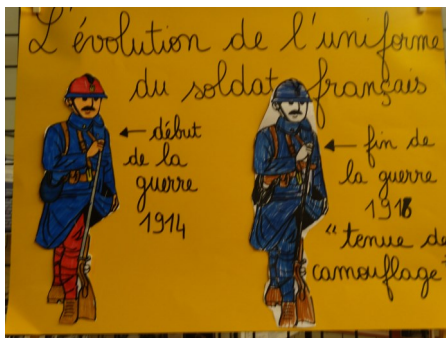 L'évolution de l'uniforme
du soldat français
début
de la
guerre
1914
fin de
la guerre
1918
"tenue de
camouflage"